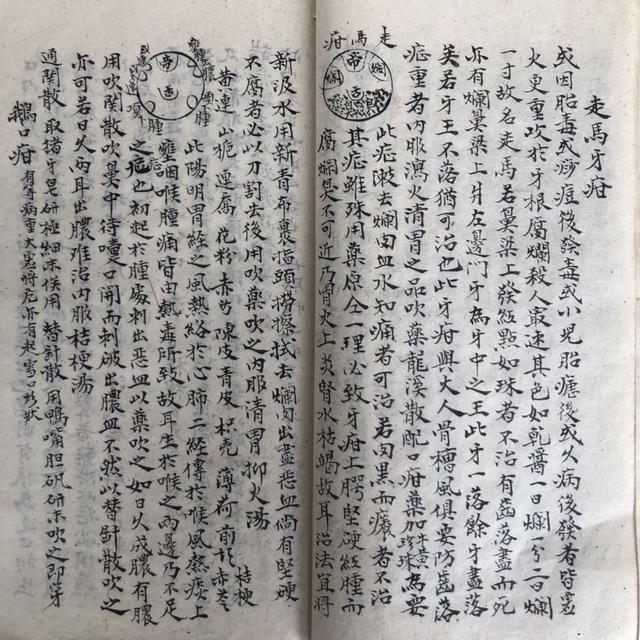 走馬牙疳
或因胎毒或痧痘後發毒或小兒胎瘧後或久病後發者皆裏
火更重吹於牙根腐爛殺人最速其色如乾醬一日爛一分二日爛
一寸故名走馬若鼻梁上發紅點如珠者不治有齒落盡而死
亦有爛鼻梁上片左邊门牙為牙中之王此牙一落餘牙盡落
矣若牙王不落猶可治也此牙疳與大人骨槽風俱要防齒落
症重者内服瀉火清胃之品吹藥龍溪散配口疳藥加牛黃珍珠為要
走馬疳
帝
爛
爛
舌
此症漱去爛肉血水知痛者可治若肉黑而癢者不治
其症雖殊用藥原仝一理必致牙疳上腭堅硬紅腫而
腐爛臭不可近乃胃火上炎腎水枯竭故耳治法宜將
新汲水用新青布裹指頭撈擦拭去爛肉出盡惡血尚有堅硬
不腐者必以刀割去後用吹藥吹之内服清胃抑火湯
黄連 山梔 連喬 花粉 赤芍 陳皮 青皮 枳壳 薄荷 前胡 赤苓 桔梗
帝
舌
項腫
連項
腫
此陽明胃經之風熱絡於心肺二經傳於喉風熱痰上
壅咽喉腫痛皆由熱毒所致故耳生於喉之两邊乃不足
之症也初起於腫處刺出惡血以藥吹之如日久成膿有膿
用吹関散吹鼻中待嚏口開而刺破出膿血不然以替針散吹之
亦可若日久两耳出膿难治内服桔梗湯
通関散 取猪牙皂研極細末候用 替針散用鴨嘴胆矾研末吹之即穿
鵝口疳 有等病重大甚將危亦有起